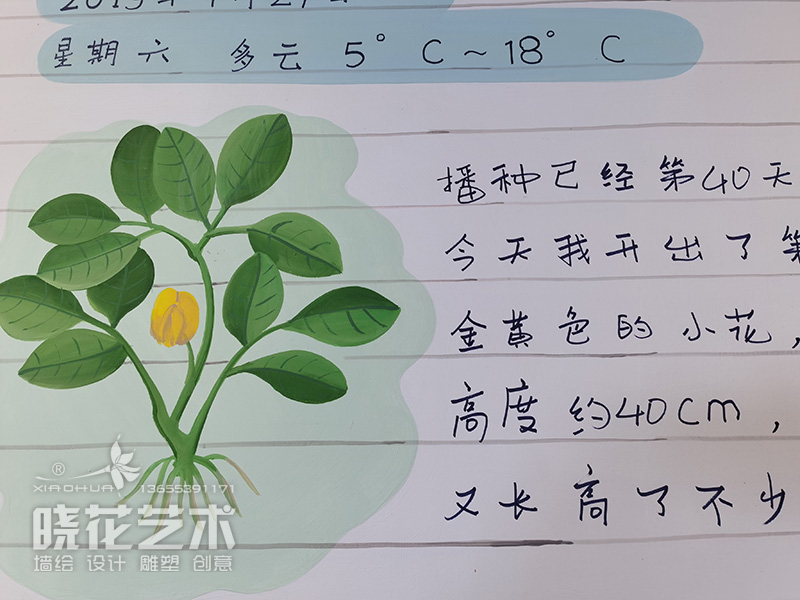 星期六 多云 5°C~18°C
播种已经第40天
今天我开出了第
金黄色的小花，
高度约40cm，
又长高了不少
® XIAOHUA 13655391171
晓花艺术
墙绘 设计 雕塑 创意